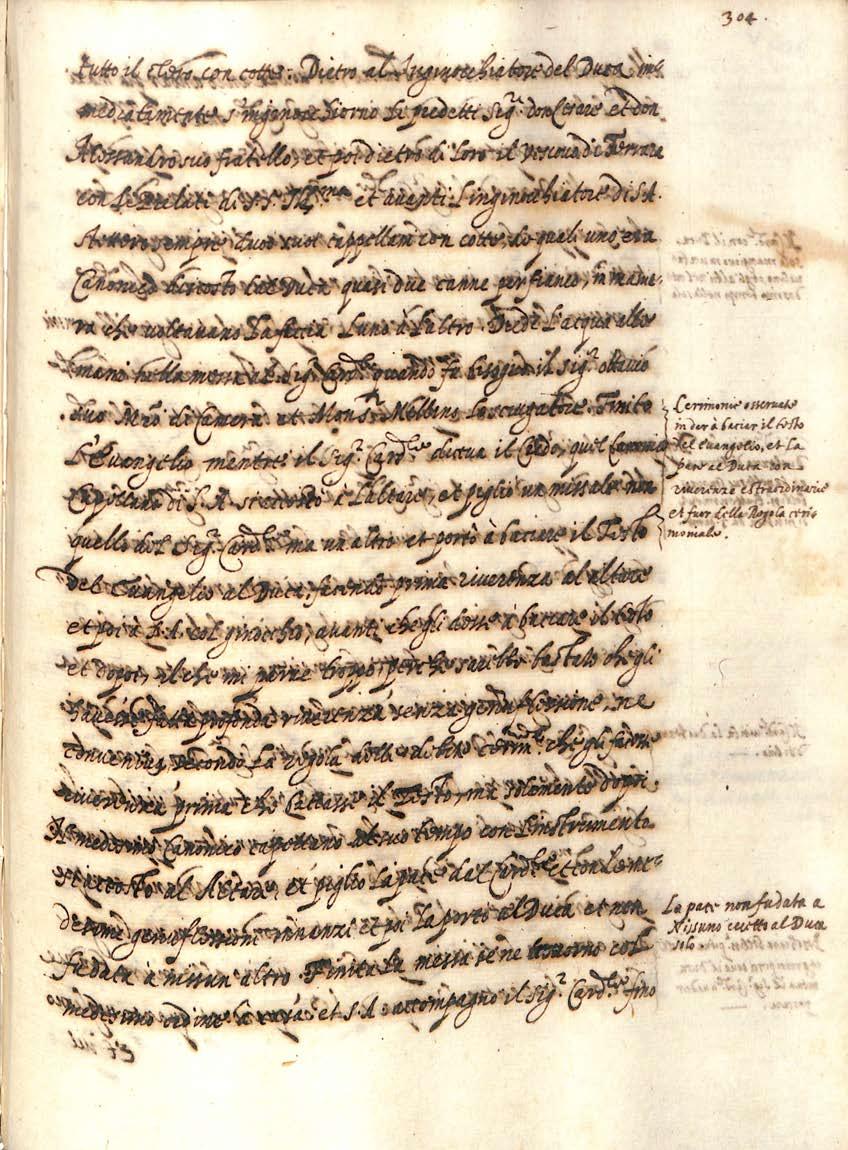 304.
tutto il clero con cotte. Dietro al Inginocchiatore del Duca im=
mediatamente s'inginocchiorno li predetti Sig.ri don Cesare et don
Alessandro suo fratello, et poi dietro di loro il Vescovo di Ferrara
con li Prelati di S. S. Ill.ma et avanti l'inginocchiatore di S. A.
stettero sempre duoi suoi cappellani con cotte, de quali uno era
Canonico discosto dal Duca quasi due canne per fianco, in manie=
ra che voltavano la faccia l'uno à l'altro. Diede l'acqua alle
mani nella messa al Sig.r Card.le quando fu bisogno il Sig.r Ottavio
suo Mro di Camera et Mons.r Mellino lo sciugatore. Finito
L'Evangelio mentre il Sig.r Card.le diceva il Credo, quel Canonico
Cappellano di S. A. si accostò à l'altare, et pigliò un missale non
quello del Sig.r Card.le ma un altro et portò à baciare il Testo
del Evangelio al Duca, facendo prima riverenza al altare
et poi à S. A. col ginocchio, avanti che gli desse à baciare il testo
et dopoi, il che mi parve troppo, perche saria bastato che gli
havesse fatta profonda riverenza senza genuflessione, ne
conveniva, secondo la regola delle debite cerim.e che gli facesse
riverenza prima che baciasse il Testo, ma solamente dopoi.
Il medesimo Canonico cappellano al suo tempo con l'instrumento
si accostò al Altare, et pigliò la pace dal Card.le et con le me=
desime genuflessioni innanzi et poi la portò al Duca et non
fu data à nissun altro. Finita la messa se ne tornorno col
medesimo ordine à casa et S. A. accompagnò il Sig.r Card.le fino
Cerimonie osservate
in dar à baciar il testo
del Evangelio, et la
pace al Duca con
riverenze estraordinarie
et fuor della Regola ceri=
moniale.
La pace non fu data a
Nissuno eccetto al Duca
solo.